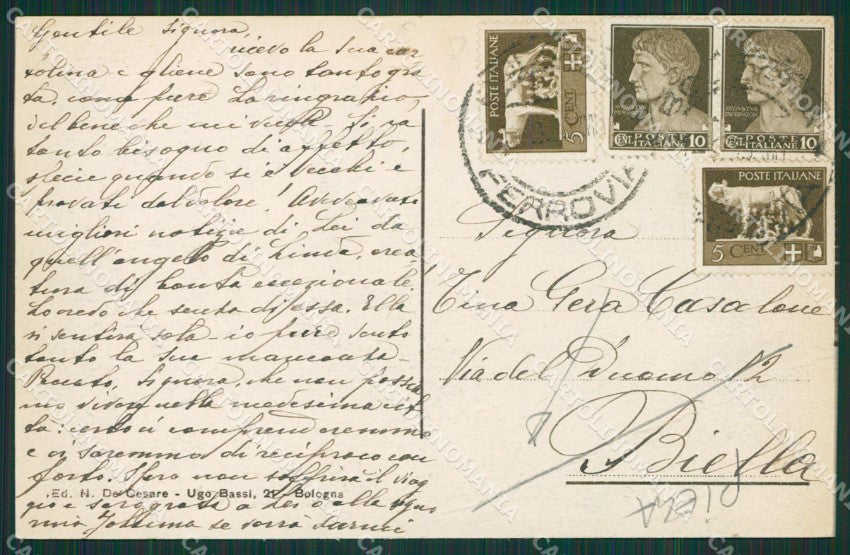 Gentile Signora,
ricevo la sua car
tolina e gliene sono tanto gra
ta, come pure La ringrazio,
del bene che mi vuole. Si ha
tanto bisogno di affetto,
specie quando si è vecchi e
provati dal dolore! Avevo avuto
migliori notizie di Lei da
quell'angelo di Linda, crea
tura di bontà eccezionale.
Lo credo che senza di essa Ella
si sentirà sola - io pure sento
tanto la sua mancanza -
Peccato, Signora, che non possia
mo vivere nella medesima cit
tà: certo ci comprenderemmo
e ci saremmo di reciproco con
forto. Spero non soffrirà il viag
gio e
a Lei e alla
mia se vorrà darmi
Ed. N. De Cesare - Ugo Bassi, 21 - Bologna
POSTE ITALIANE
5 CENT
POSTE
ITALIANE 10
CENT
POSTE
ITALIANE 10
CENT
POSTE ITALIANE
5 CENT
FERROVIA
Signora
Tina Gera Casalone
Via del Duomo 12
Biella
CARTOLINOMANIA